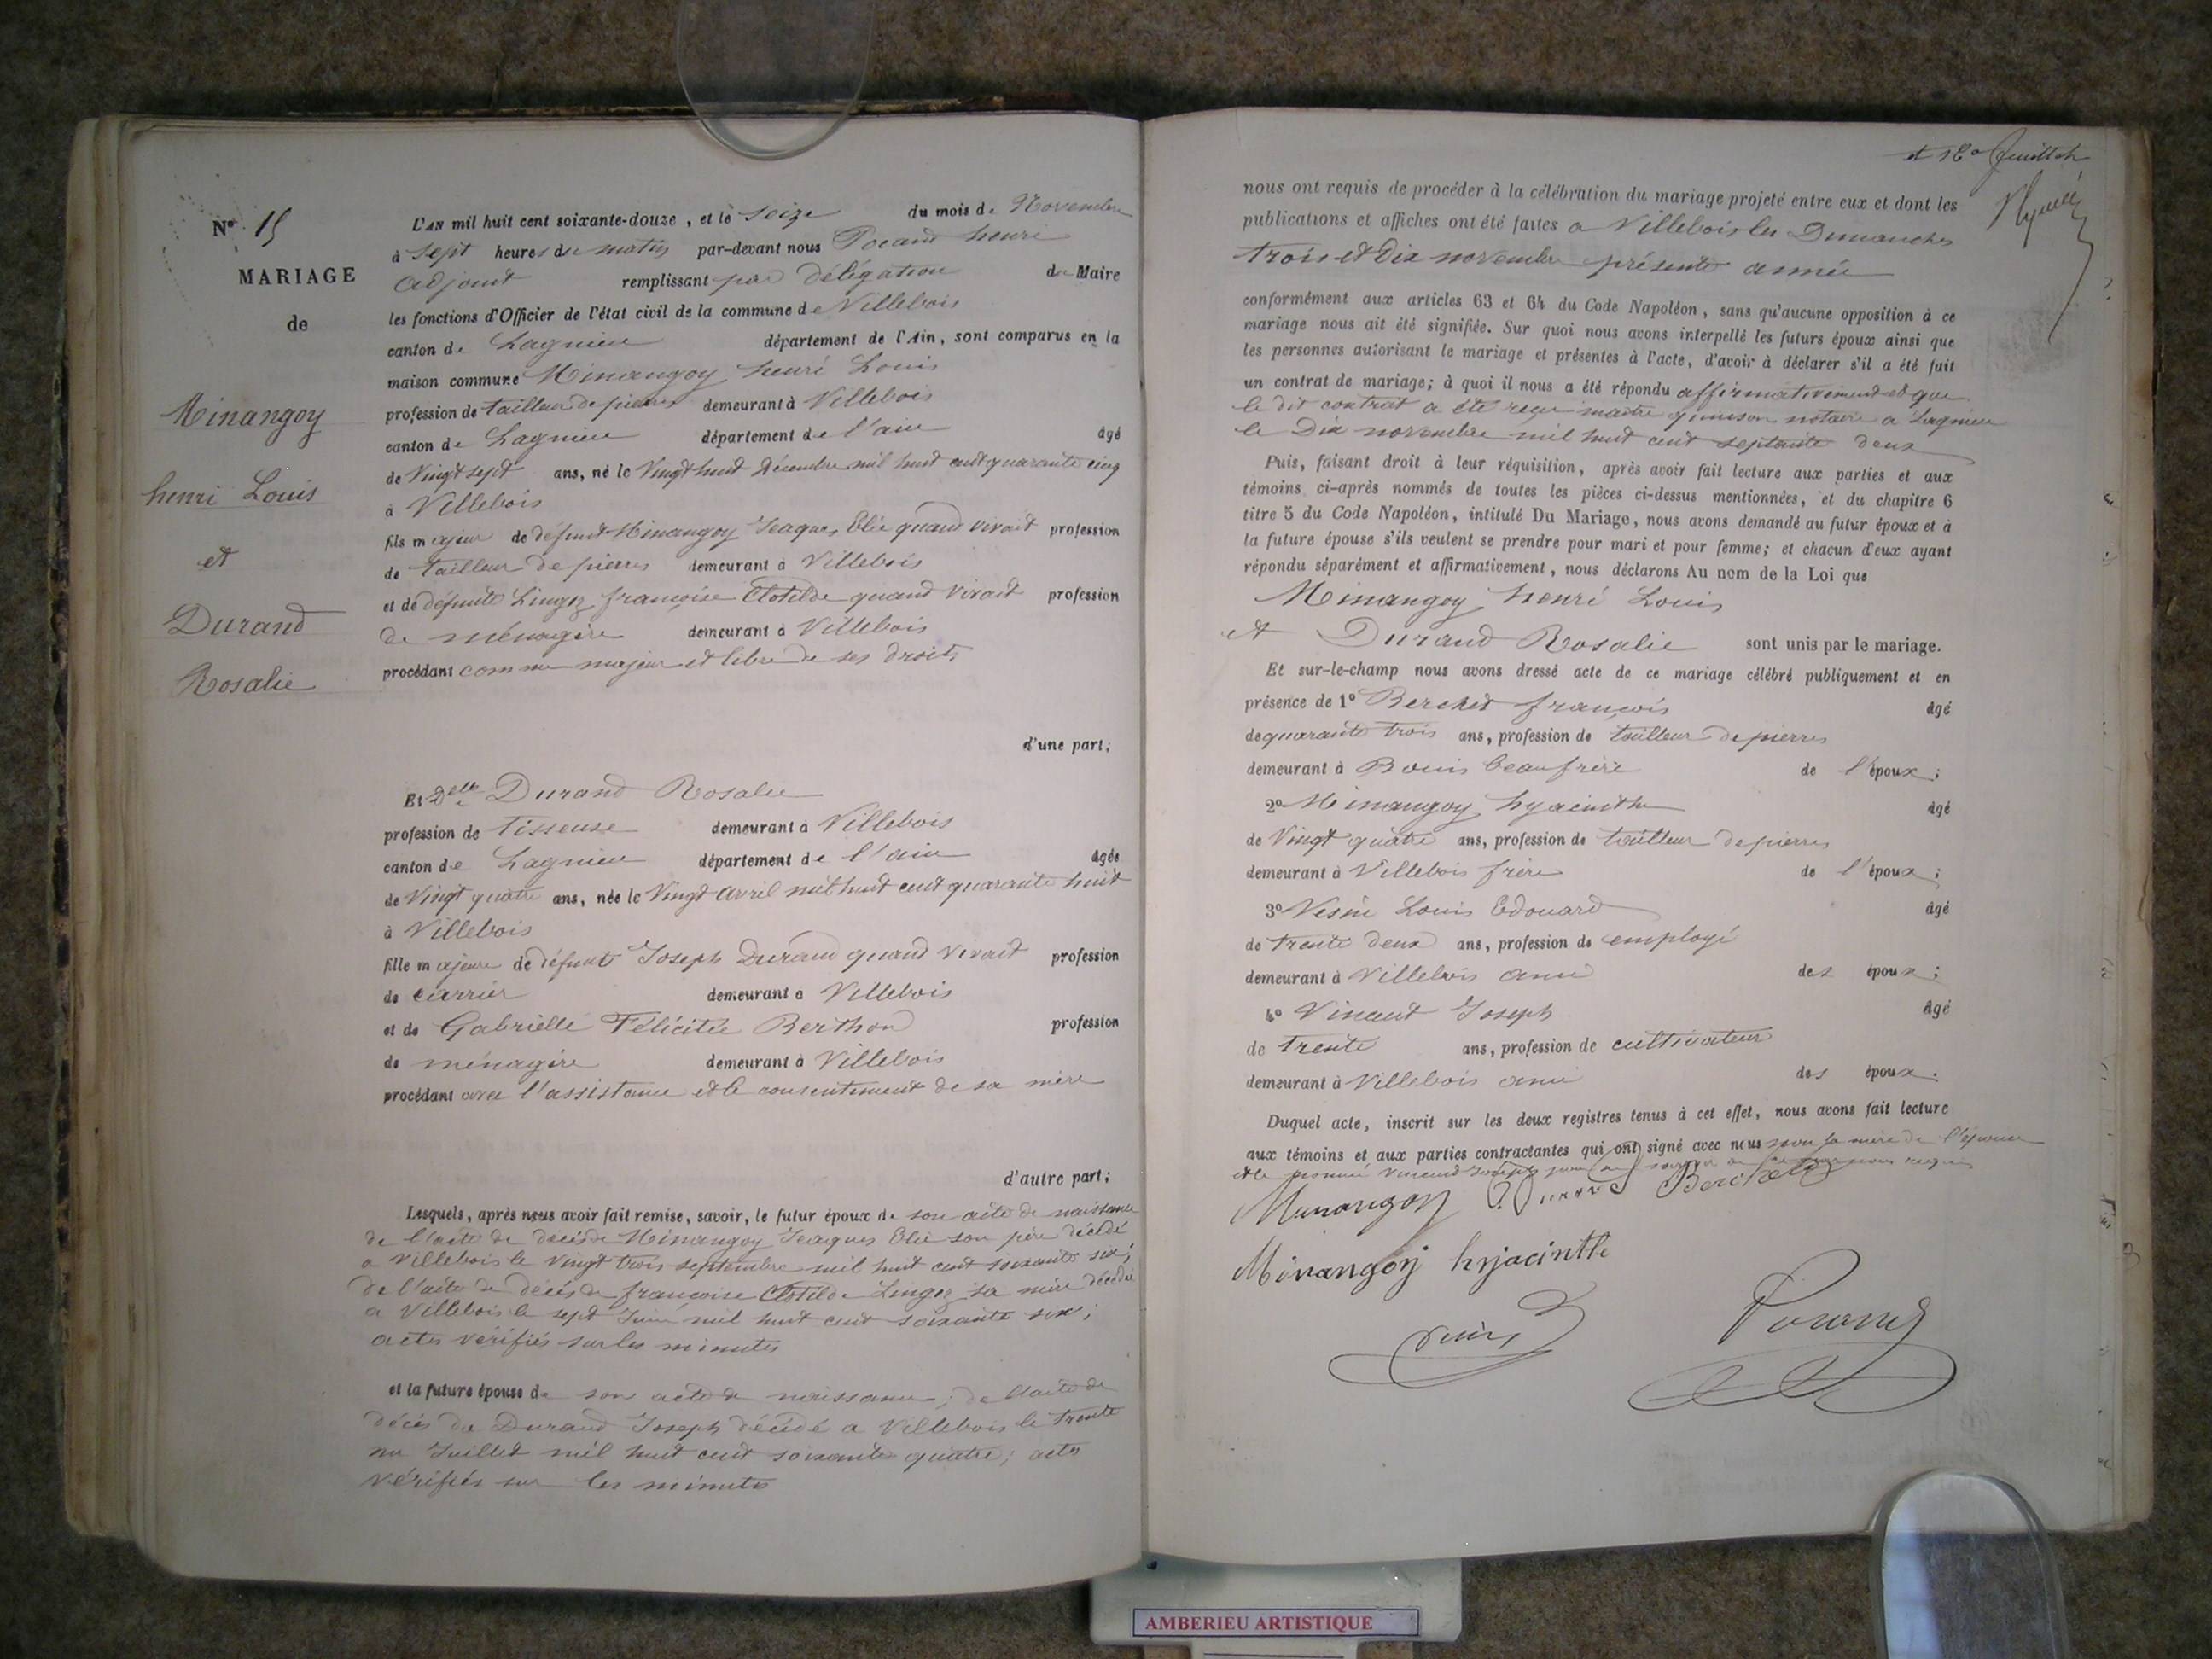 N° 15
MARIAGE
de
Minangoy
henri Louis
et
Durand
Rosalie
L'AN mil huit cent soixante-douze, et le seize du mois de Novembre
à sept heures du matin par-devant nous Pocand henri
adjoint remplissant par délégation du Maire
les fonctions d'Officier de l'état civil de la commune de Villebois
canton de Lagnieu département de l'Ain, sont comparus en la
maison commune Minangoy henri Louis
profession de tailleur de pierres demeurant à Villebois
canton de Lagnieu département de l'ain âgé
de Vingt sept ans, né le Vingt huit Décembre mil huit cent quarante cinq
à Villebois
fils majeur de défunt Minangoy Jeaques Elie quand vivait profession
de tailleur de pierres demeurant à Villebois
et de défunte Lingez françoise Clotilde quand vivait profession
de ménagère demeurant à Villebois
procédant comme majeur et libre de ses droits
d'une part;
Et Delle Durand Rosalie
profession de tisseuse demeurant à Villebois
canton de Lagnieu département de l'ain âgée
de Vingt quatre ans, née le Vingt avril mil huit cent quarante huit
à Villebois
fille majeure de défunt Joseph Durand quand vivait profession
de carrier demeurant à Villebois
et de Gabrielle Félicitée Berthon profession
de ménagère demeurant à Villebois
procédant avec l'assistance et le consentement de sa mère
d'autre part;
Lesquels, après nous avoir fait remise, savoir, le futur époux de son acte de naissance
de l'acte de décès de Minangoy Jeaques Elie son père décédé
a Villebois le vingt trois septembre mil huit cent soixante six;
de l'acte de décès de françoise Clotilde Lingez sa mère décédée
a Villebois le sept Juin mil huit cent soixante six;
actes vérifiés sur les minutes
et la future épouse de son acte de naissance; de l'acte de
décès de Durand Joseph décédé a Villebois le trente
un Juillet mil huit cent soixante quatre; actes
vérifiés sur les minutes
et 16e feuillet
nous ont requis de procéder à la célébration du mariage projeté entre eux et dont les
publications et affiches ont été faites a Villebois les Dimanches
trois et Dix novembre présente année
conformément aux articles 63 et 64 du Code Napoléon, sans qu'aucune opposition à ce
mariage nous ait été signifiée. Sur quoi nous avons interpellé les futurs époux ainsi que
les personnes autorisant le mariage et présentes à l'acte, d'avoir à déclarer s'il a été fait
un contrat de mariage; à quoi il nous a été répondu affirmativement et que
le dit contrat a été reçu maitre notaire a Lagnieu
le Dix novembre mil huit cent septante deux
Puis, faisant droit à leur réquisition, après avoir fait lecture aux parties et aux
témoins ci-après nommés de toutes les pièces ci-dessus mentionnées, et du chapitre 6
titre 5 du Code Napoléon, intitulé Du Mariage, nous avons demandé au futur époux et à
la future épouse s'ils veulent se prendre pour mari et pour femme; et chacun d'eux ayant
répondu séparément et affirmativement, nous déclarons Au nom de la Loi que
Minangoy henri Louis
et Durand Rosalie sont unis par le mariage.
Et sur-le-champ nous avons dressé acte de ce mariage célébré publiquement et en
présence de 1° Berchet françois âgé
de quarante trois ans, profession de tailleur de pierres
demeurant à Bouis beaufrère de l'époux;
2° Minangoy hyacinthe âgé
de Vingt quatre ans, profession de tailleur de pierres
demeurant à Villebois frère de l'époux;
3° Vesin Louis Edouard âgé
de trente deux ans, profession de employé
demeurant à Villebois ami des époux;
4° Vincent Joseph âgé
de trente ans, profession de cultivateur
demeurant à Villebois ami des époux.
Duquel acte, inscrit sur les deux registres tenus à cet effet, nous avons fait lecture
aux témoins et aux parties contractantes qui ont signé avec nous non la mère de l'épouse
et le nommé Vincent Joseph requis
Minangoy R Durand Berchet
Minangoy hyjacinthe
Vesin Pocand
AMBERIEU ARTISTIQUE